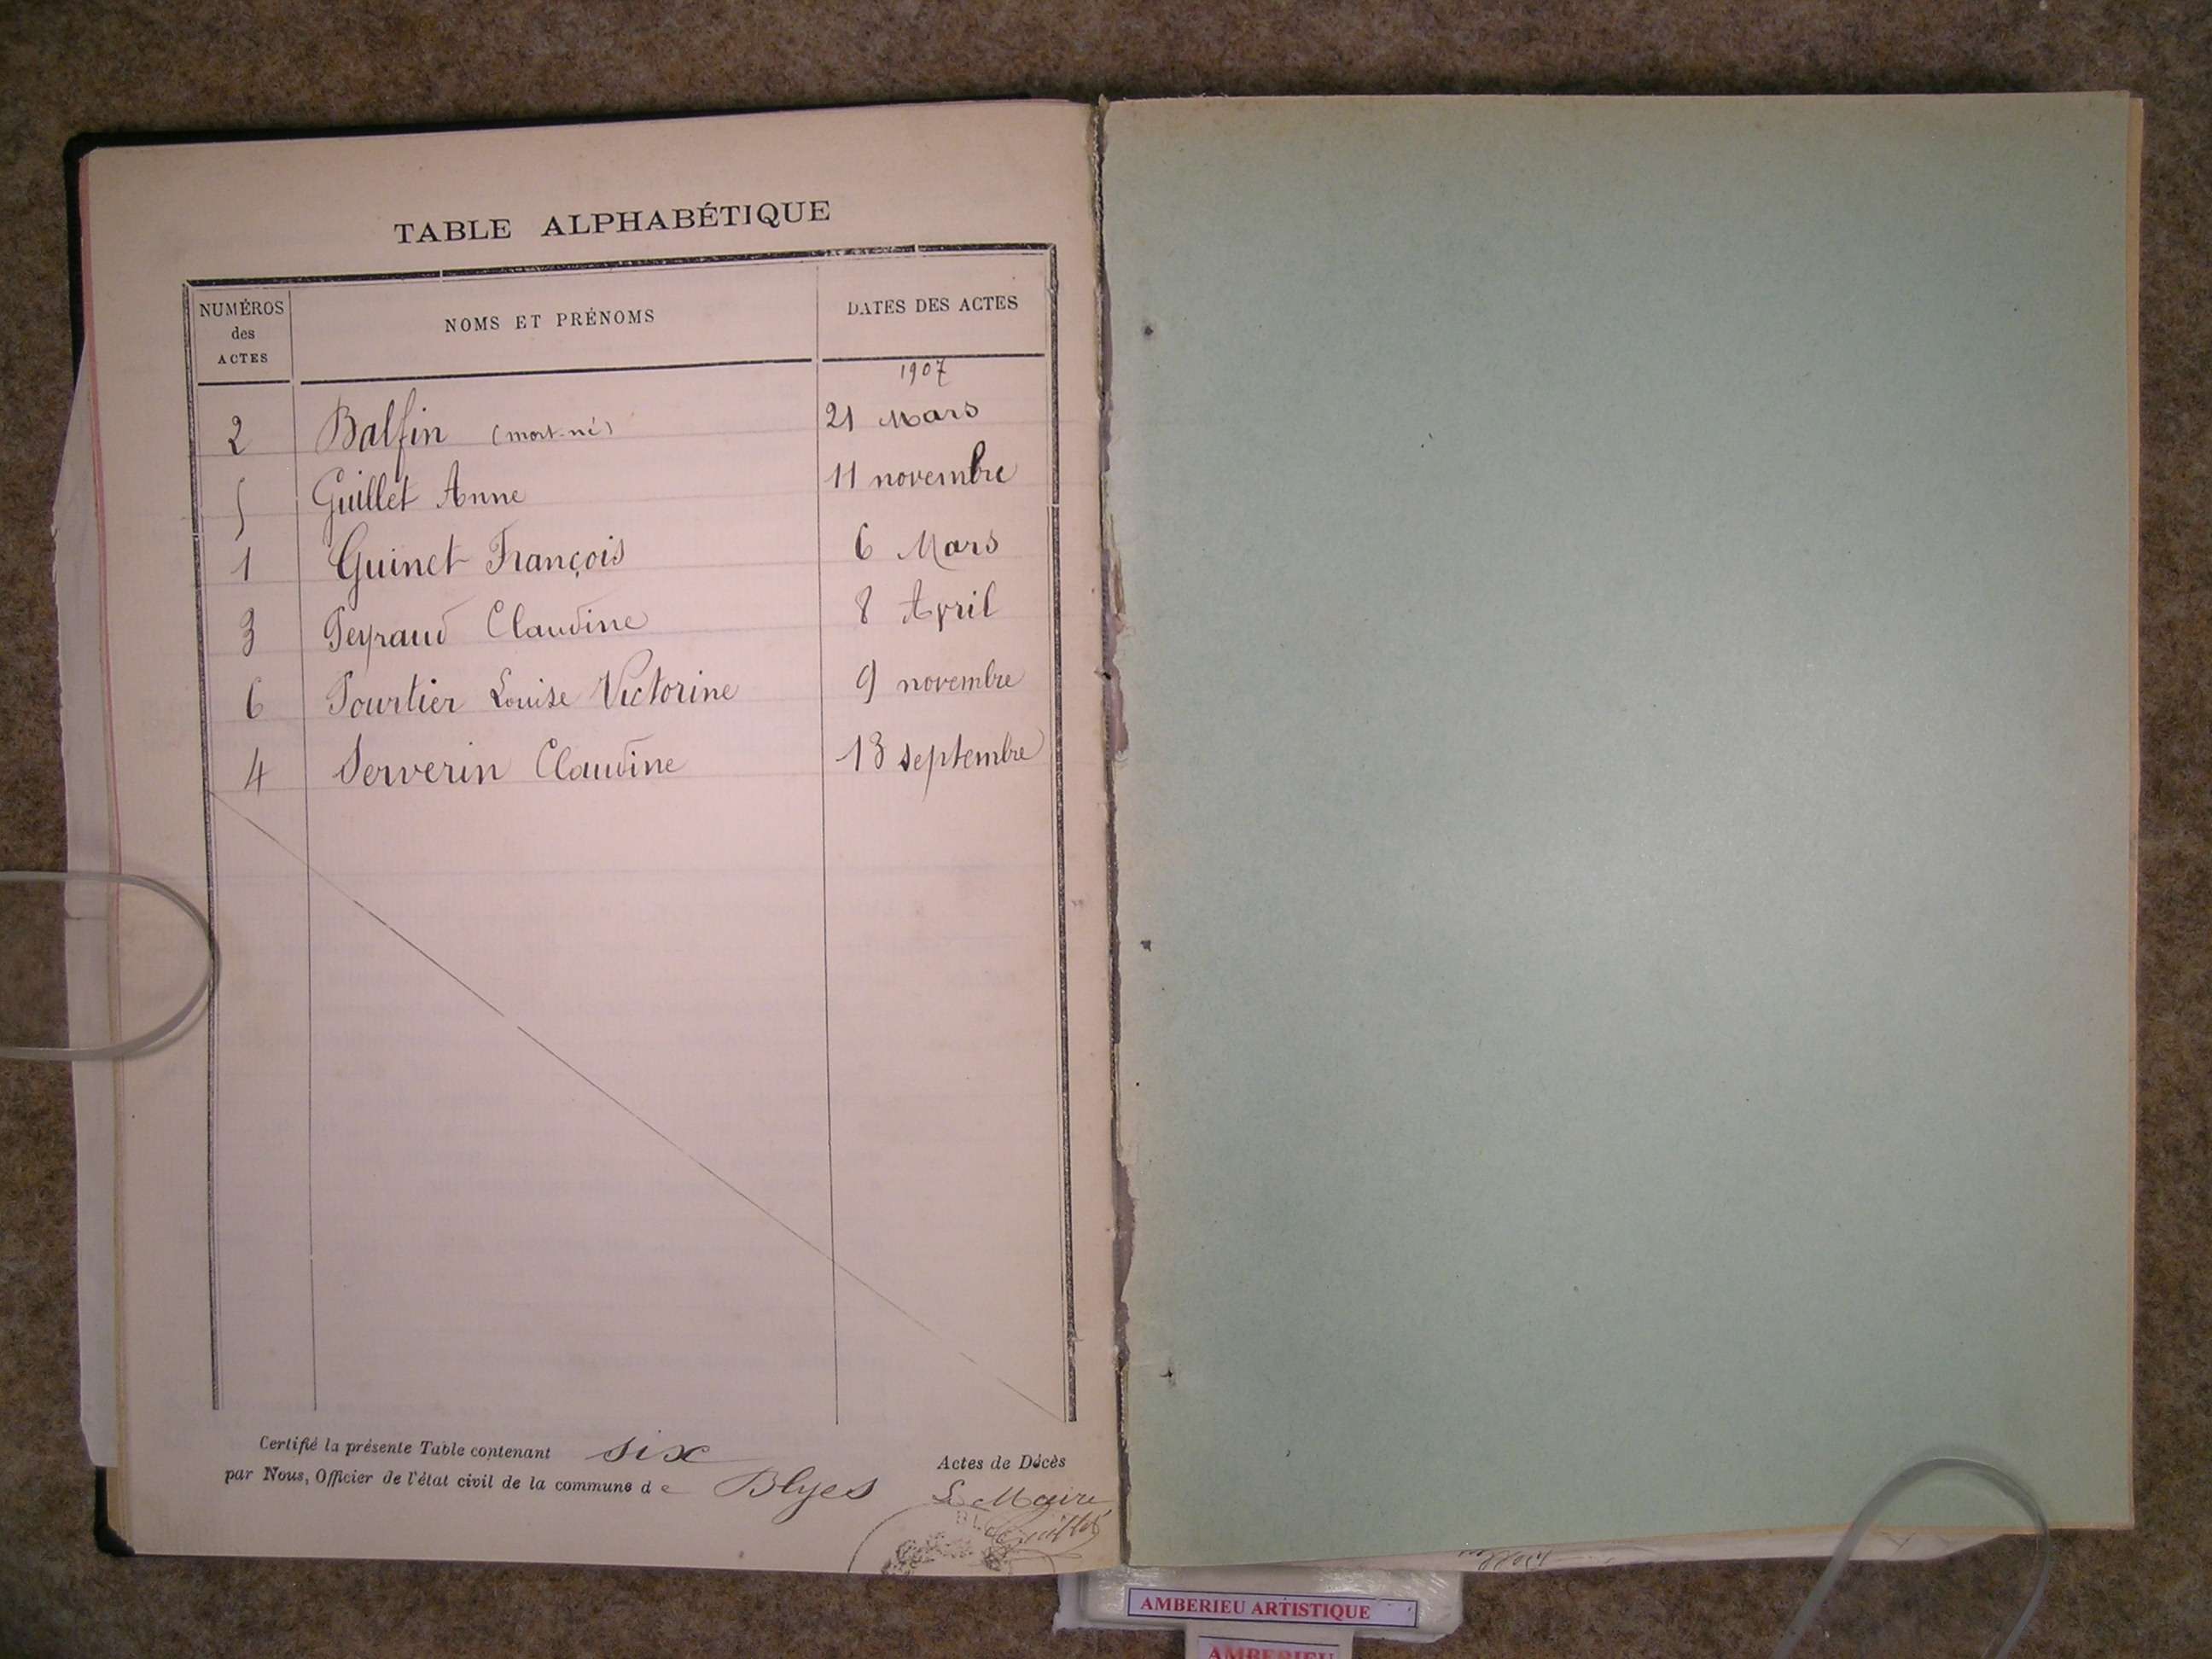 TABLE ALPHABÉTIQUE
NUMÉROS des ACTES NOMS ET PRÉNOMS DATES DES ACTES
1907
2 Balfin (mort-né) 21 Mars
5 Guillet Anne 11 novembre
1 Guinet François 6 Mars
3 Peyraud Claudine 8 Avril
6 Pourtier Louise Victorine 9 novembre
4 Serverin Claudine 13 septembre
Certifié la présente Table contenant six Actes de Décès
par Nous, Officier de l'état civil de la commune de Blyes
Le Maire
Guillet
AMBERIEU ARTISTIQUE
AMBERIEU